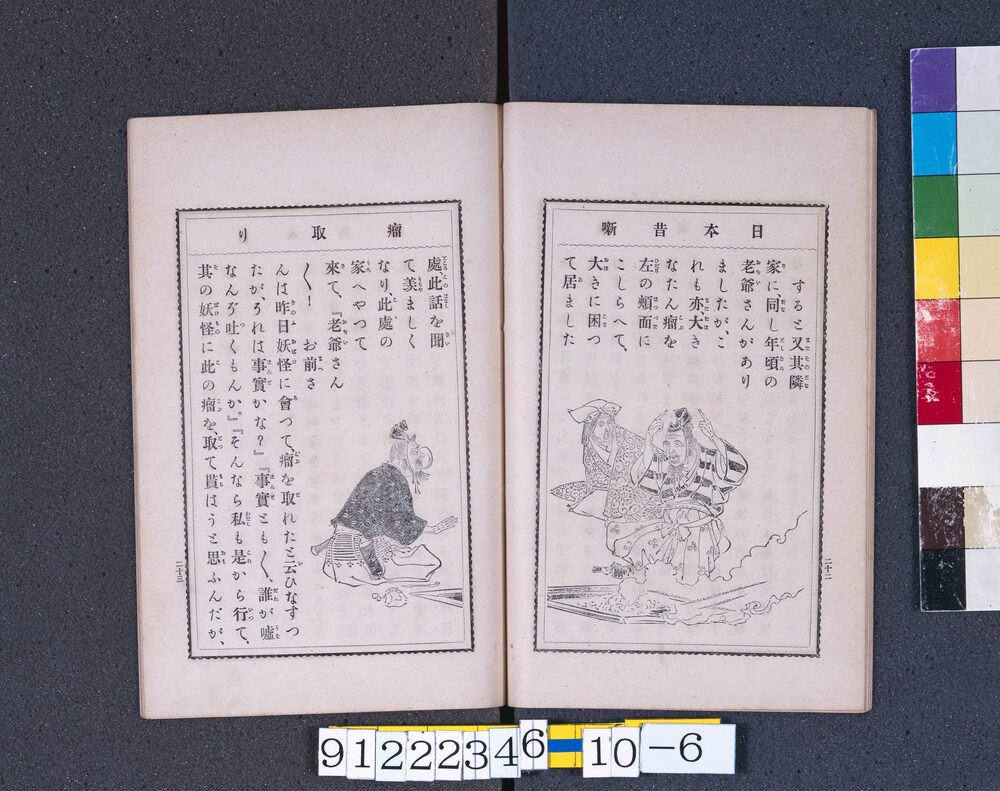 日本昔噺
すると又其隣
家に、同し年頃の
老爺さんがあり
ましたが、こ
れも亦、大き
なたん瘤を
左の頬面に
こしらへて、
大きに困つ
て居ました
二十二
瘤取り
處、此話を聞
て羨ましく
なり、此處の
家へやつて
來て、『老爺さん
〱！ お前さ
んは昨日妖怪に會つて、瘤を取れたと云ひなすつ
たが、それは事實かな？』『事實とも〱、誰が嘘
なんぞ吐くもんか。』『そんなら私も是から行て、
其の妖怪に此の瘤を、取て貰はうと思ふんだが、
二十三
91222346 10-6